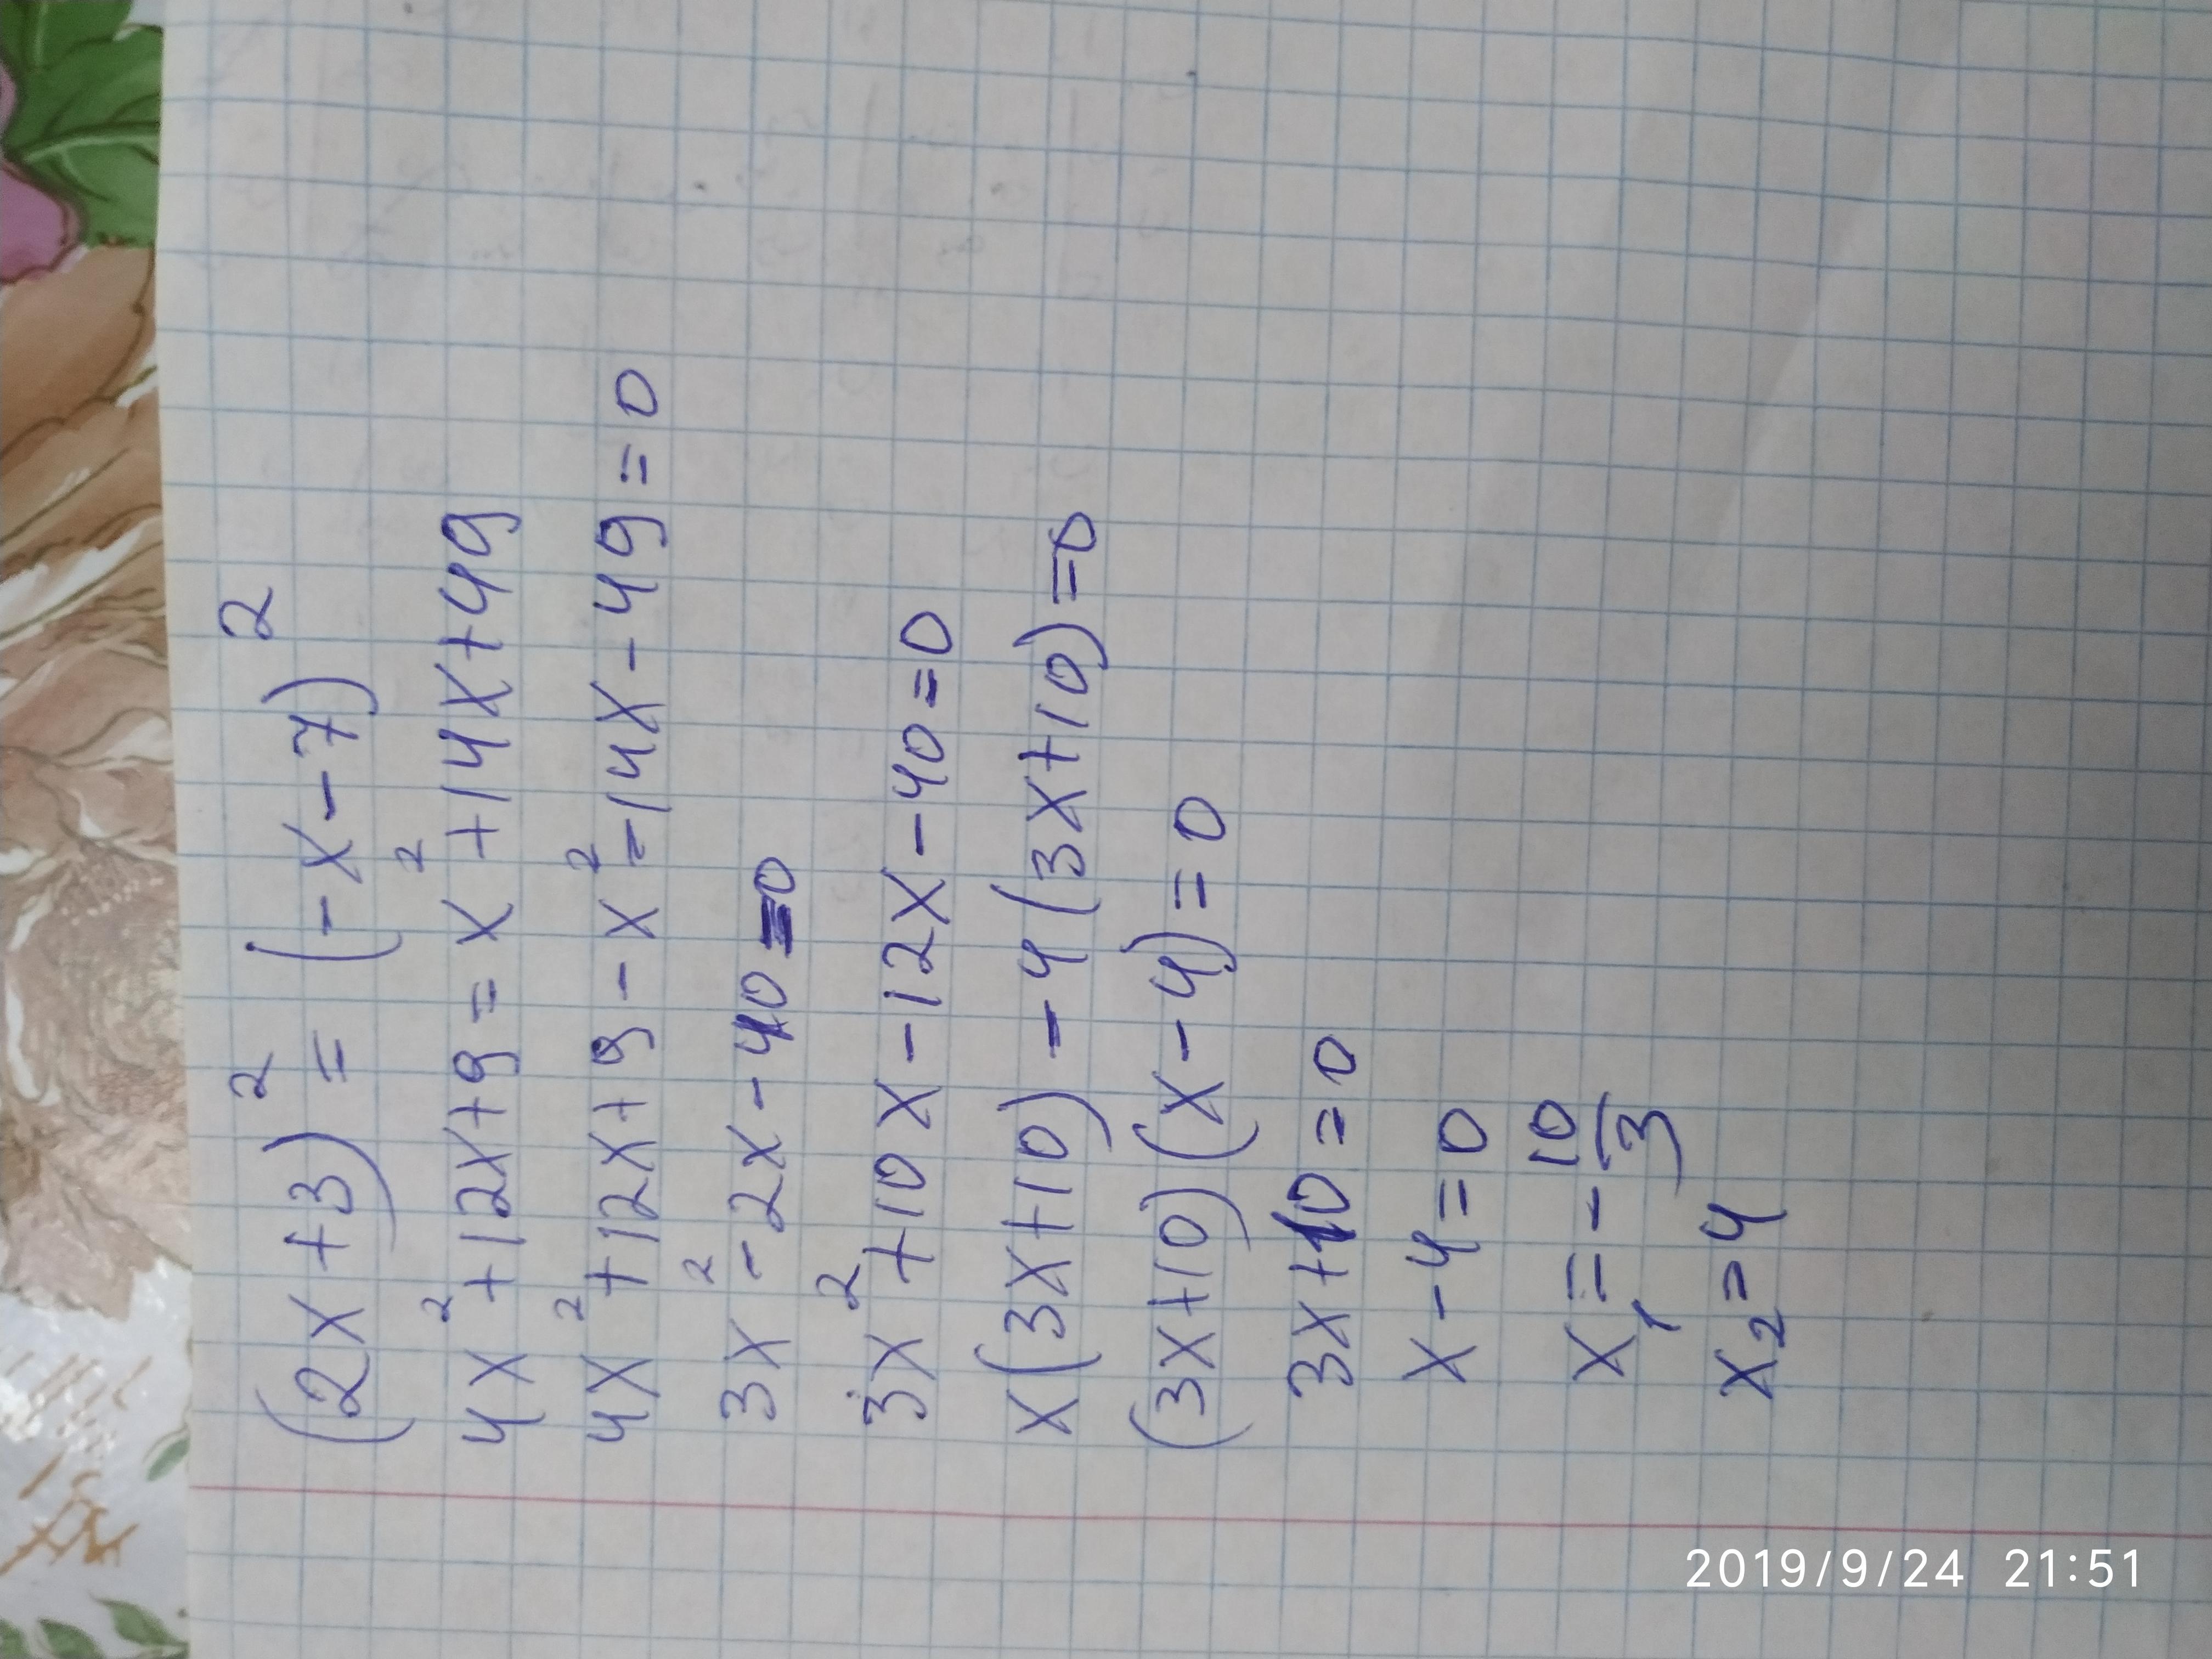 (2x+3)² = (-x-7)²
4x²+12x+9=x²+14x+49
4x²+12x+9-x²-14x-49=0
3x²-2x-40=0
3x²+10x-12x-40=0
x(3x+10)-4(3x+10)=0
(3x+10)(x-4)=0
3x+10=0
x-4=0
x₁=-10/3
x₂=4
2019/9/24 21:51